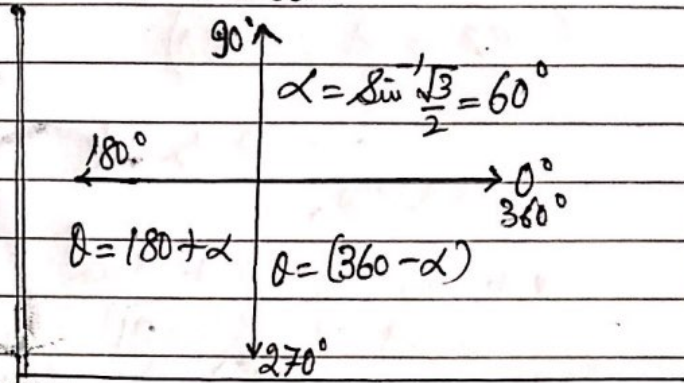 90°
α = Sin⁻¹ √3/2 = 60°
180°
0°
360°
θ = 180 + α
θ = (360 - α)
270°